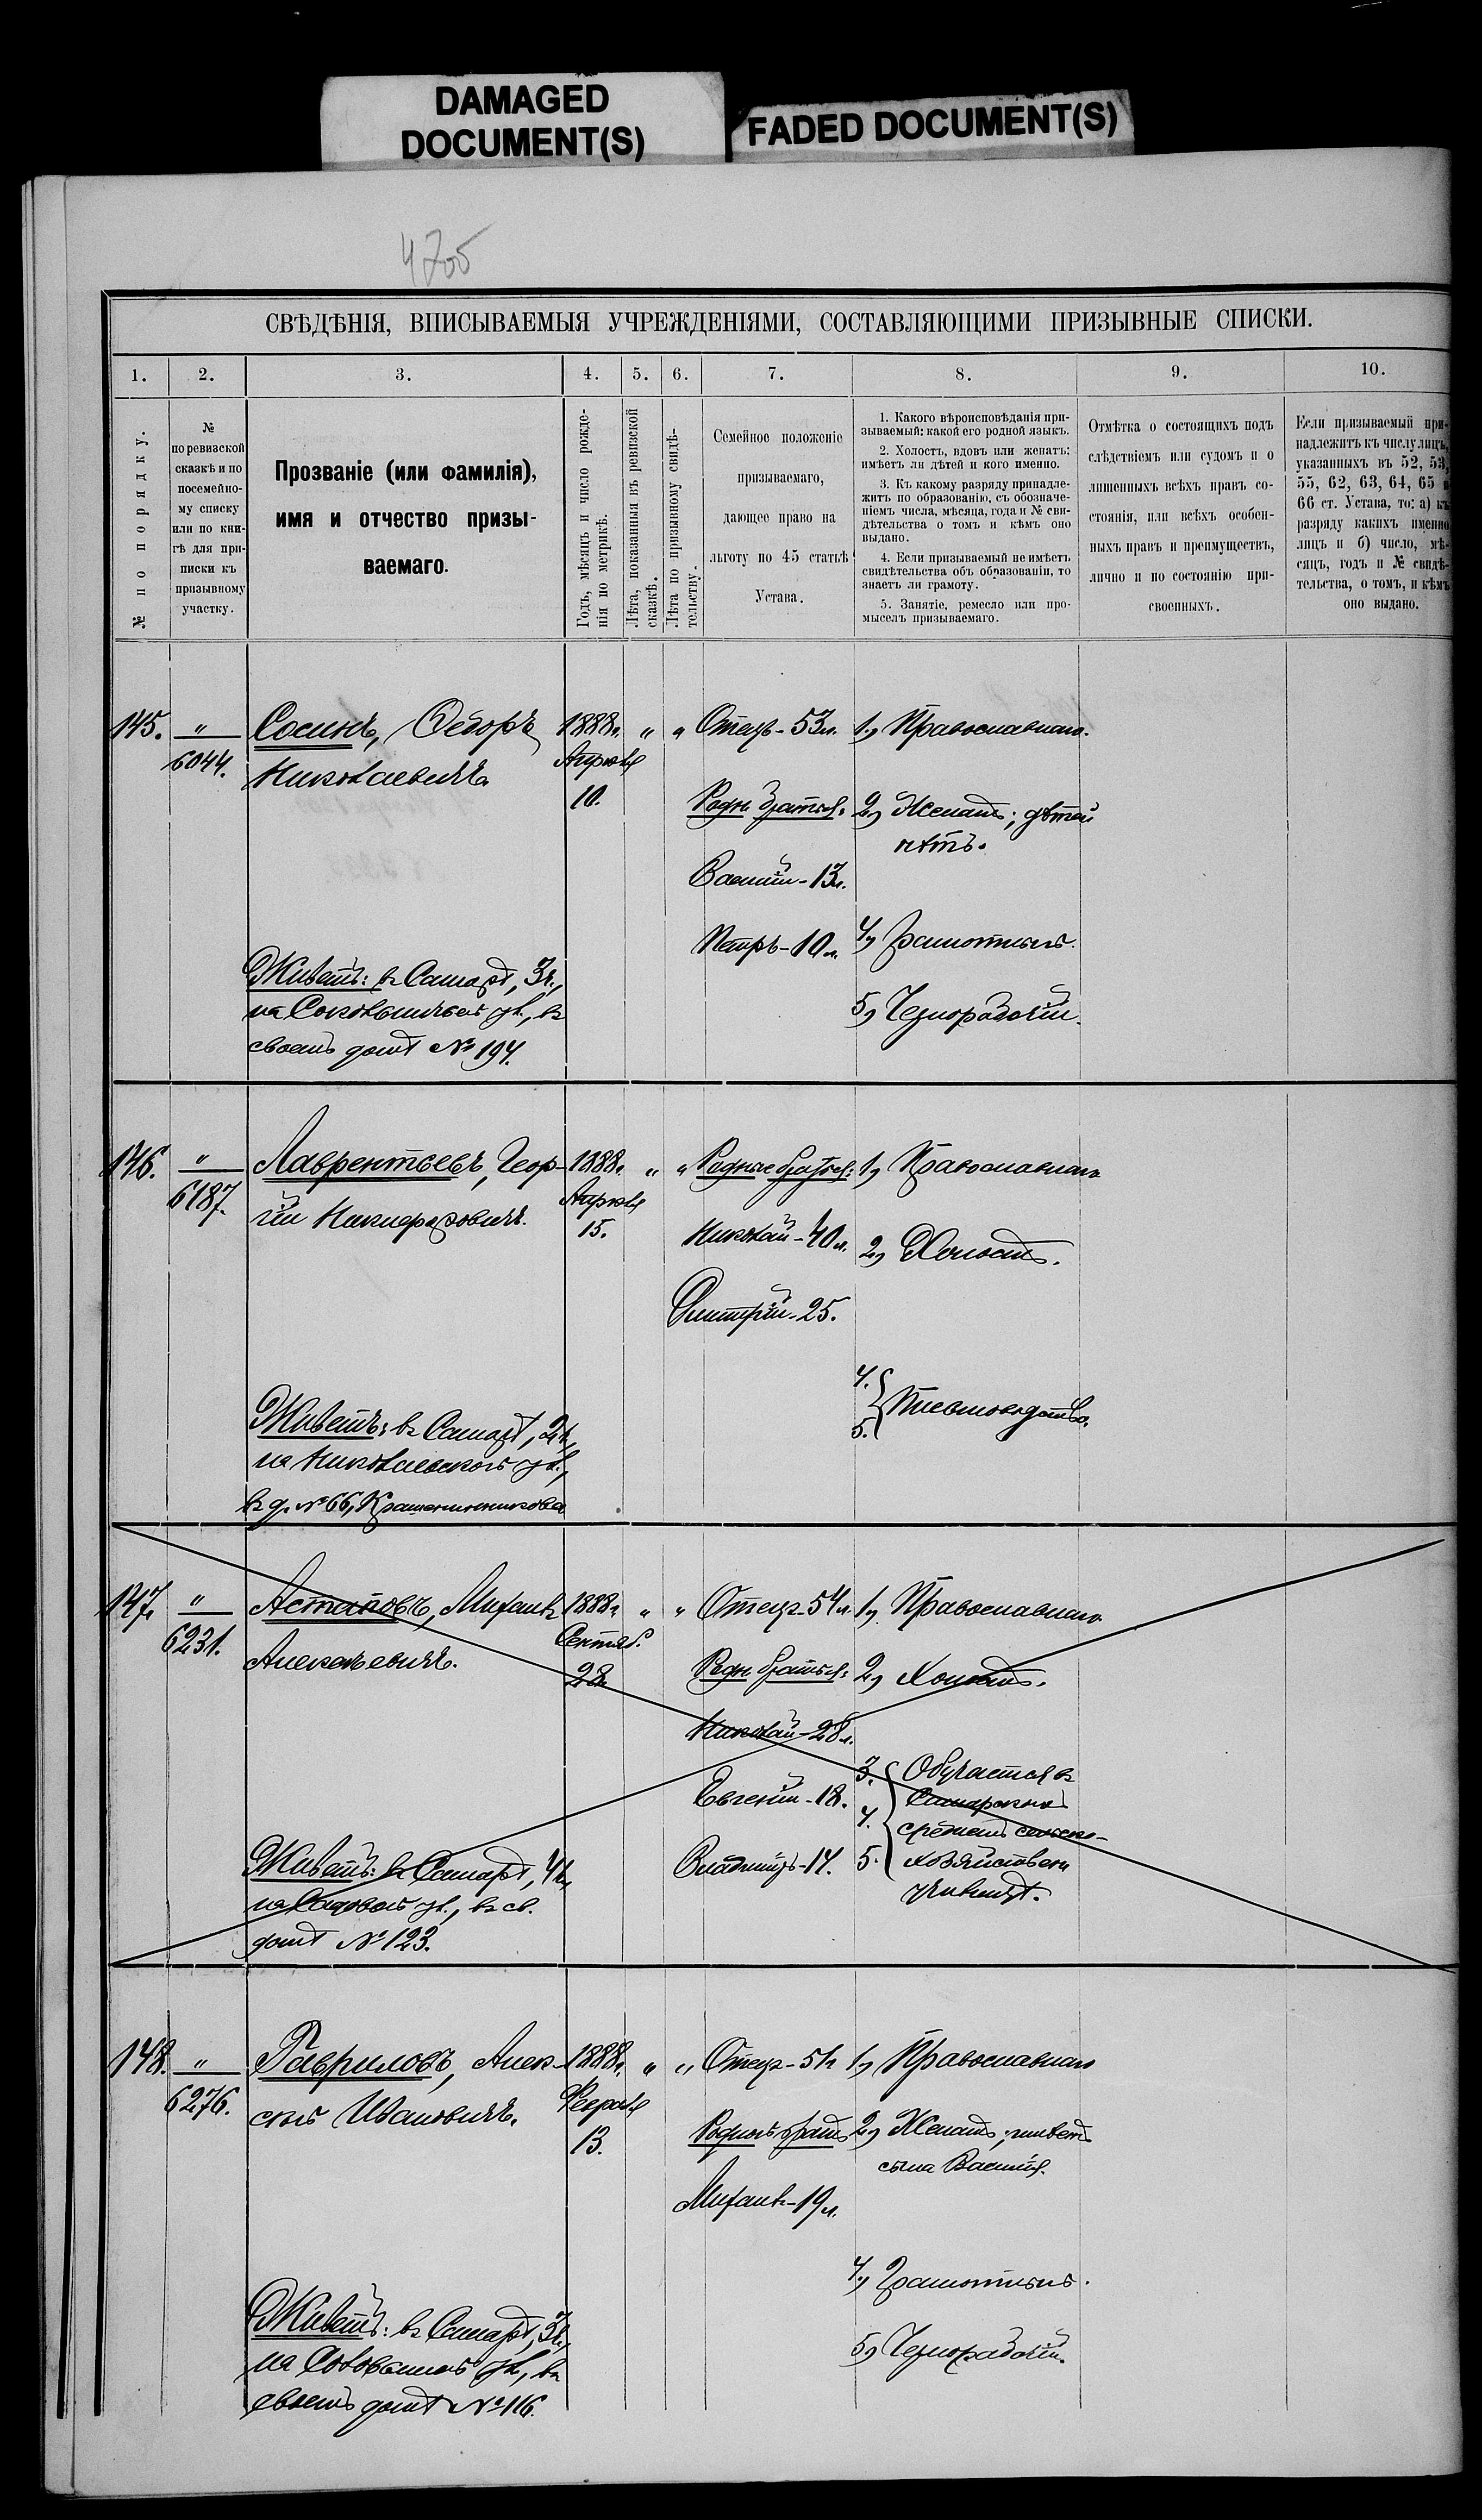 DAMAGED
DOCUMENT(S)
FADED DOCUMENT(S)
4705
СВѢДѢНІЯ, ВПИСЫВАЕМЫЯ УЧРЕЖДЕНІЯМИ, СОСТАВЛЯЮЩИМИ ПРИЗЫВНЫЕ СПИСКИ.
1. 2. 3. 4. 5. 6. 7. 8. 9. 10.
№ по порядку.
№
по ревизской
сказкѣ и по
посемейно-
му списку
или по кни-
гѣ для при-
писки къ
призывному
участку.
Прозваніе (или фамилія),
имя и отчество призы-
ваемаго.
Годъ, мѣсяцъ и число рожде-
нія по метрикѣ.
Лѣта, показанныя въ ревизской
сказкѣ.
Лѣта по призывному свидѣ-
тельству.
Семейное положеніе
призываемаго,
дающее право на
льготу по 45 статьѣ
Устава.
1. Какого вѣроисповѣданія при-
зываемый: какой его родной языкъ.
2. Холостъ, вдовъ или женатъ;
имѣетъ ли дѣтей и кого именно.
3. Къ какому разряду принадле-
житъ по образованію, съ обозначе-
ніемъ числа, мѣсяца, года и № сви-
дѣтельства о томъ и кѣмъ оно
выдано.
4. Если призываемый не имѣетъ
свидѣтельства объ образованіи, то
знаетъ ли грамоту.
5. Занятіе, ремесло или про-
мыселъ призываемаго.
Отмѣтка о состоящихъ подъ
слѣдствіемъ или судомъ и о
лишенныхъ всѣхъ правъ со-
стоянія, или всѣхъ особен-
ныхъ правъ и преимуществъ,
лично и по состоянію при-
своенныхъ.
Если призываемый при-
надлежитъ къ числу лицъ,
указанныхъ въ 52, 53,
55, 62, 63, 64, 65 и
66 ст. Устава, то: а) къ
разряду какихъ именно
лицъ и б) число, мѣ-
сяцъ, годъ и № свидѣ-
тельства, о томъ, и кѣмъ
оно выдано.
145. " 6044.
Сосинъ, Ѳедоръ
Николаевичъ.
1888г.
Апрѣля
10.
" "
Отецъ - 53л.
Родн. братья:
Василій - 13л.
Петръ - 10л.
1, Православнаго.
2, Женатъ; дѣтей
нѣтъ.
4, Грамотный.
5, Чернорабочій.
Живетъ: въ Самарѣ, 3ч.,
на Соколовичьей ул., въ
своемъ домѣ № 194.
146. " 6187.
Лаврентьевъ, Геор-
гій Никифоровичъ.
1888г.
Апрѣля
15.
" "
Родные братья:
Николай - 40л.
Димитрій - 25.
1, Православнаго
2, Холостъ.
4.
5. Письмоводство.
Живетъ: въ Самарѣ, 2ч.,
на Николаевской ул.,
въ д. № 66, Крашенинникова
147. " 6231.
Астаповъ, Михаилъ
Алексѣевичъ.
1888г.
Сентяб.
28.
" "
Отецъ - 54л.
Родн. братья:
Николай - 28л.
Евгеній - 18.
Владиміръ - 14.
1, Православнаго
2, Холостъ.
3.
4.
5.
Обучается въ
Самарскомъ
среднемъ сельско-
хозяйствен.
училищѣ.
Живетъ: въ Самарѣ, 4ч.,
на Садовой ул., въ св.
домѣ № 123.
148. " 6276.
Гавриловъ, Алек-
сѣй Ивановичъ.
1888г.
Февраля
13.
" "
Отецъ - 51л
Родной братъ
Михаилъ - 19л.
1, Православнаго
2, Женатъ; имѣетъ
сына Василія.
4, Грамотный.
5, Чернорабочій.
Живетъ: въ Самарѣ, 3ч.,
на ул., въ
своемъ домѣ № 116.